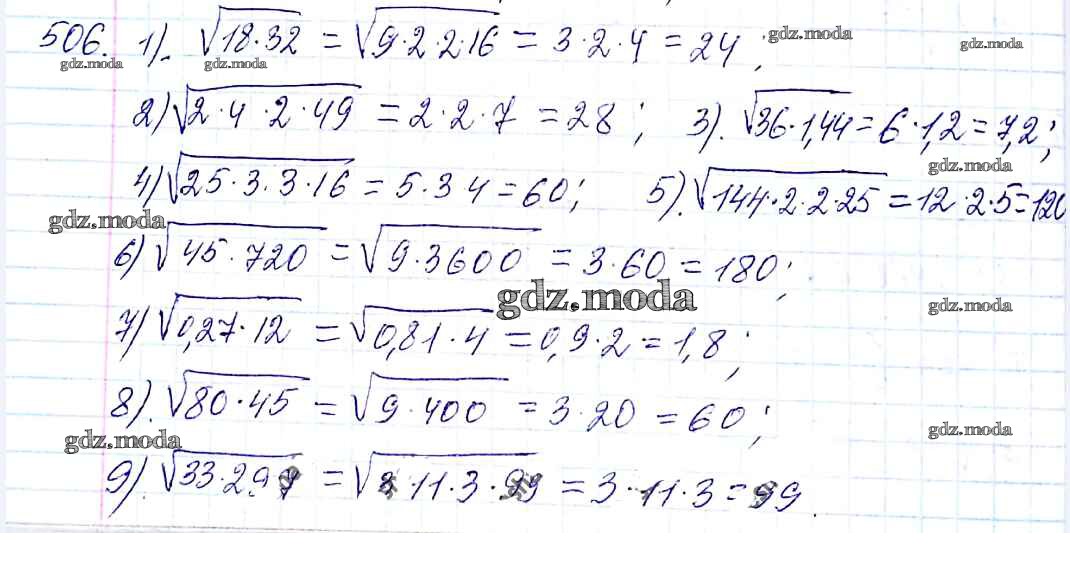 506. 1). √18·32 = √9·2·2·16 = 3·2·4 = 24,
gdz.moda gdz.moda gdz.moda gdz.moda
2) √2·4·2·49 = 2·2·7 = 28; 3). √36·1,44 = 6·1,2 = 7,2;
gdz.moda
4) √25·3·3·16 = 5·3 4 = 60; 5). √144·2·2·25 = 12·2·5 = 120
gdz.moda
6) √45·720 = √9·3600 = 3·60 = 180;
gdz.moda gdz.moda
7) √0,27·12 = √0,81·4 = 0,9·2 = 1,8;
8). √80·45 = √9·400 = 3·20 = 60;
gdz.moda gdz.moda
9). √33·297 = √3·11·3·99 = 3·11·3 = 99.